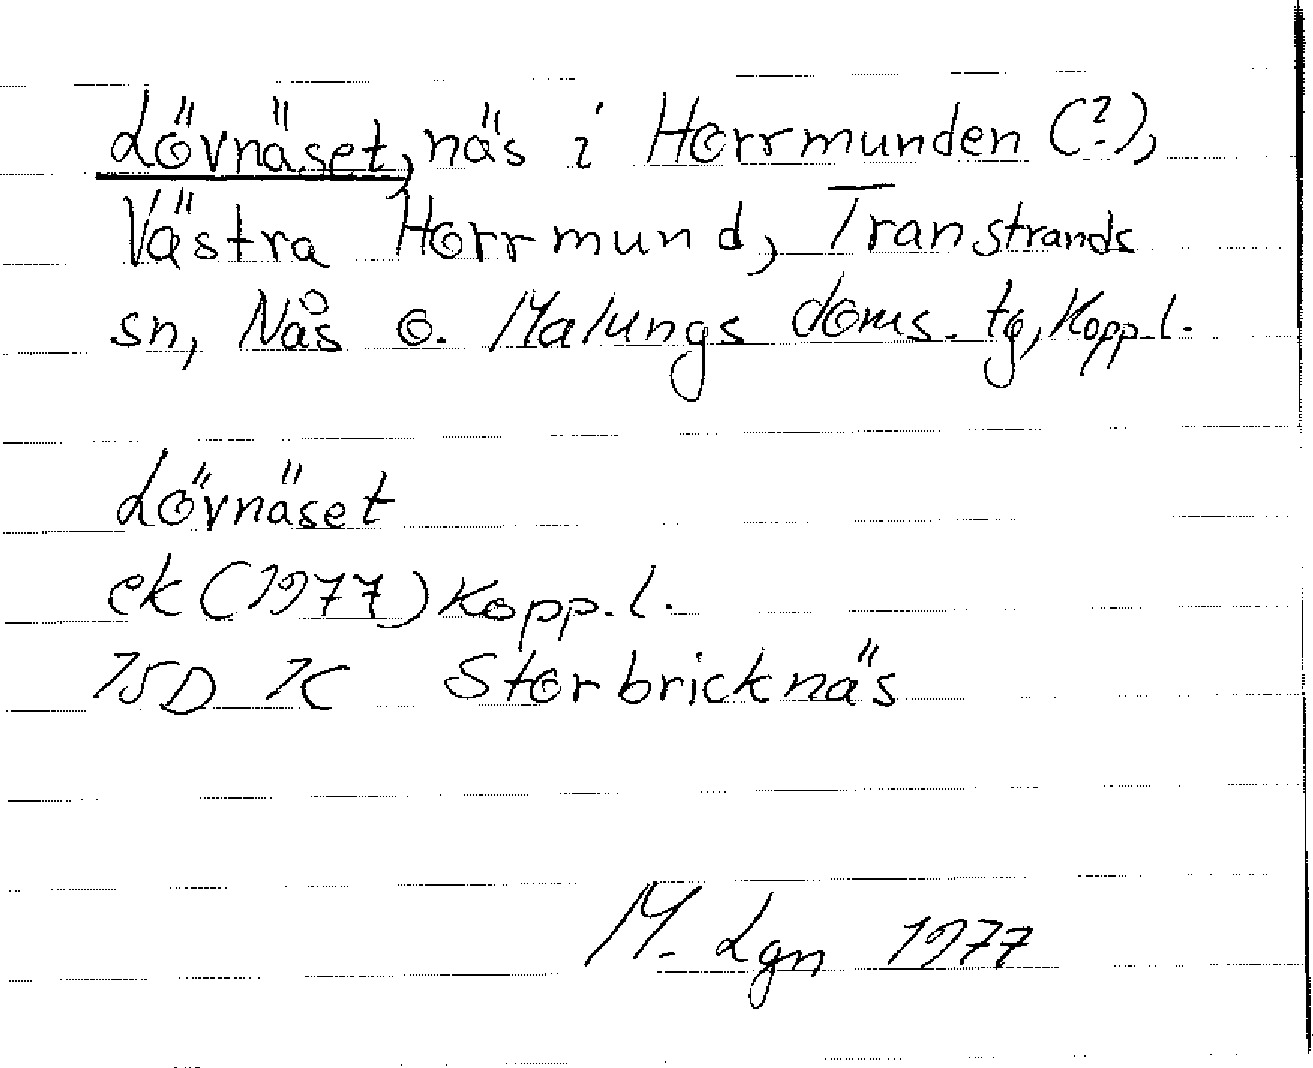 Lövnäset, näs i Horrmunden (?),
Västra Horrmund, Transtrands
sn, Nås o. Malungs doms. tg, Kopp. l.
Lövnäset
ek (1977) Kopp. l.
15D 7C Storbricknäs
M. Lgn 1977